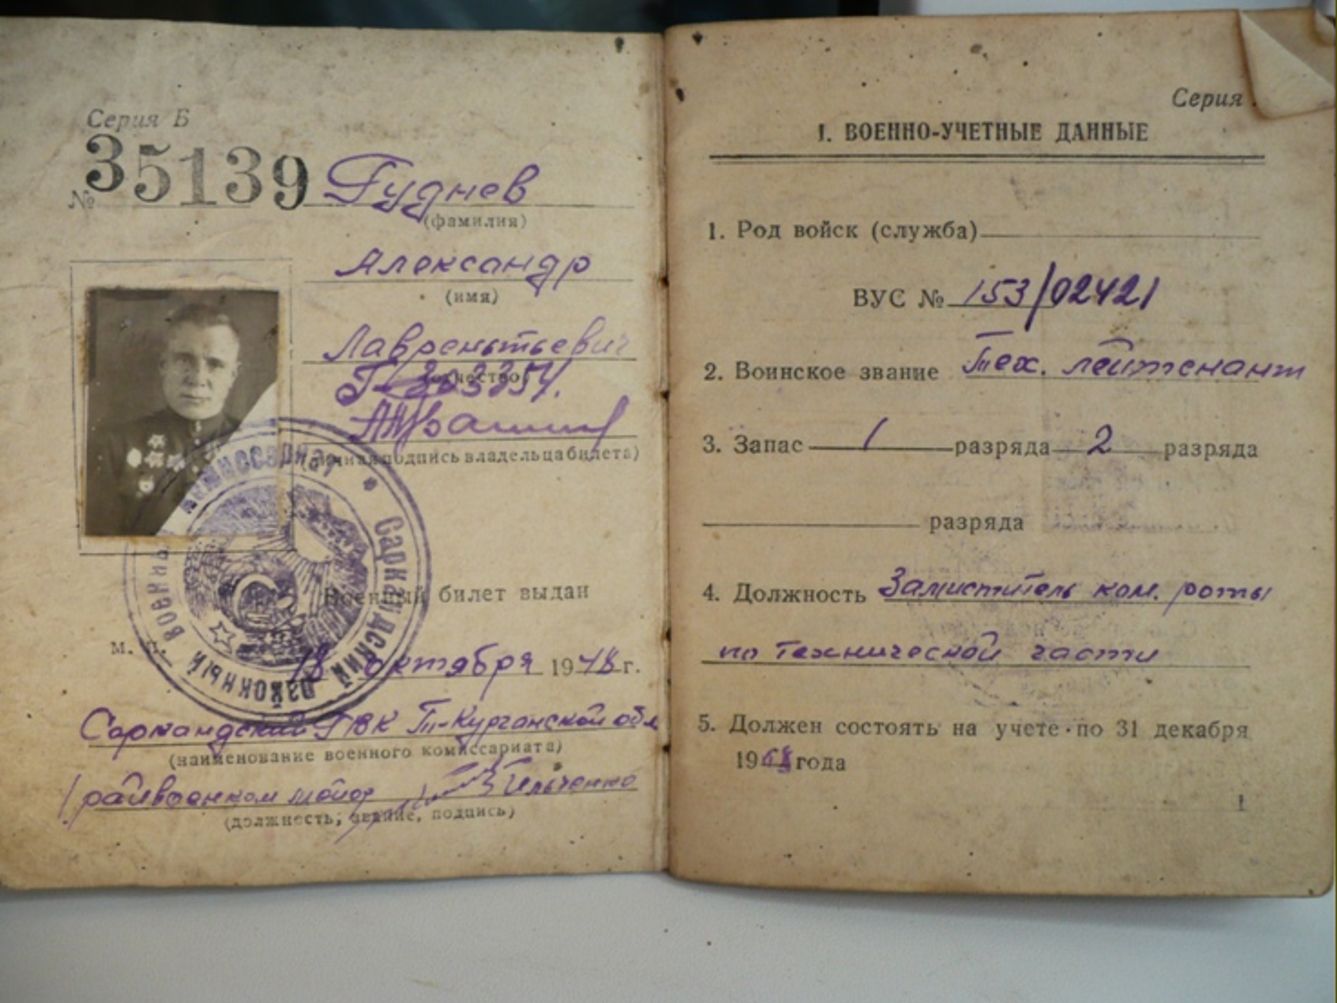 Серия Б
№ 35139
Гуднев
(фамилия)
Александр
(имя)
Лаврентьевич
(личная подпись владельца билета)
Военный билет выдан
М. П.
18 октября 1948 г.
Саркандский РВК Т-Курганской обл
(наименование военного комиссариата)
райвоенком майор Ильченко
(должность, звание, подпись)
Саркандский районный военный комиссариат
Серия
I. ВОЕННО-УЧЕТНЫЕ ДАННЫЕ
1. Род войск (служба)
ВУС № 153/02421
2. Воинское звание Тех. лейтенант
3. Запас 1 разряда 2 разряда
разряда
4. Должность Замиститель ком. роты
по технической части
5. Должен состоять на учете по 31 декабря
1968 года
1